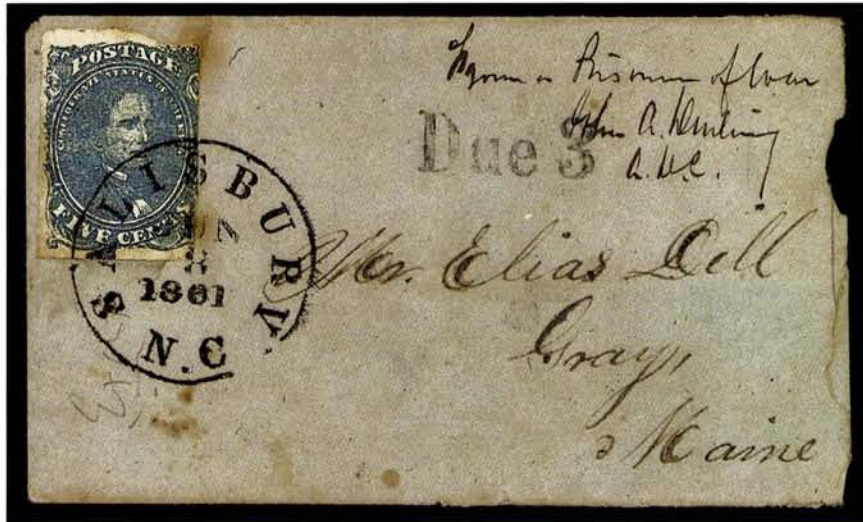 POSTAGE
CONFEDERATE STATES OF AMERICA
FIVE CENTS
SALISBURY
1861
N.C
Due 3
Prisoner of War
John A.
Mr. Elias Dill
Gray,
Maine